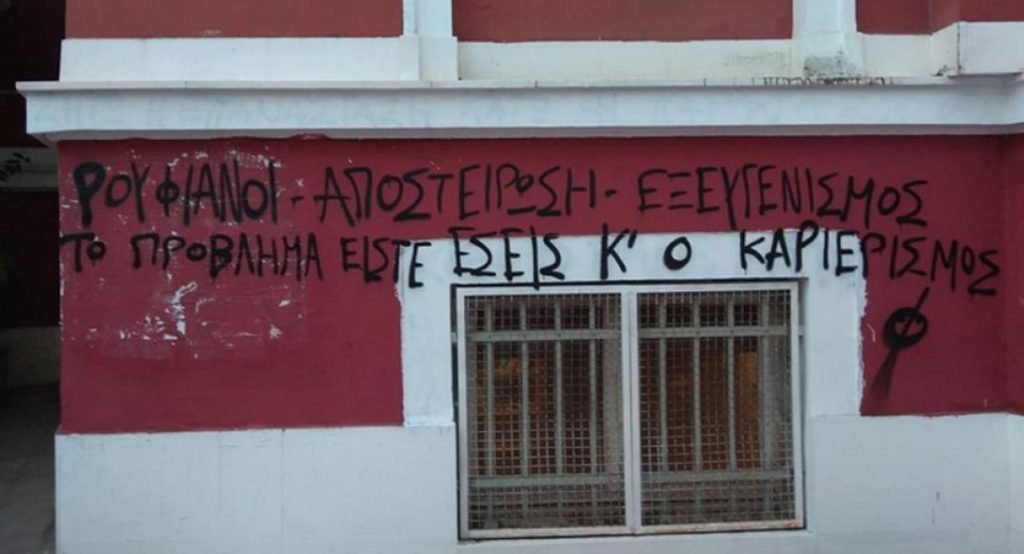 ΡΟΥΦΙΑΝΟΙ - ΑΠΟΣΤΕΙΡΩΣΗ - ΕΞΕΥΓΕΝΙΣΜΟΣ
ΤΟ ΠΡΟΒΛΗΜΑ ΕΙΣΤΕ ΕΣΕΙΣ Κ' Ο ΚΑΡΙΕΡΙΣΜΟΣ